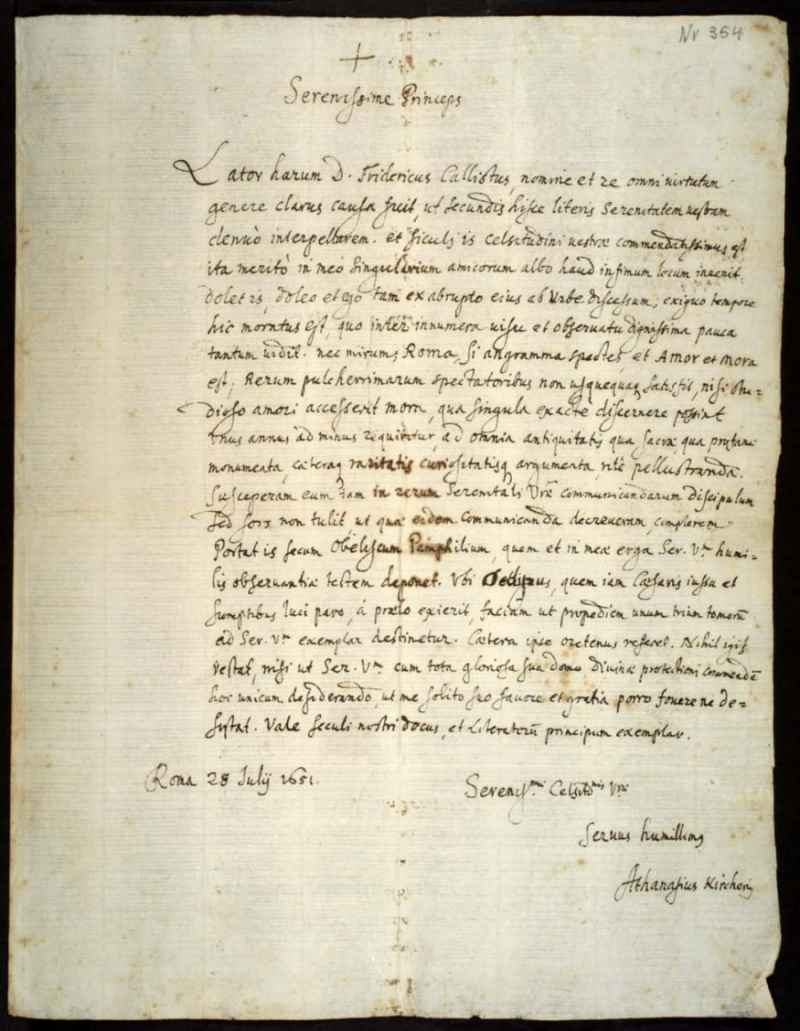 Nr 354
Serenissime Princeps
Lator harum D. Fridericus Callistus, nomine et re omni virtutum
genere clarus causa fuit, ut secundis hisce literis Serenitatem vestram
denuò interpellarem. et siculi is Celsitudini vestræ commendatissimus est
ita meritò in meo singularium amicorum albo haud infimum locum invenit.
dolet is, doleo et ego tam ex abrupto eius ab Urbe discessum, exiguo tempore
hic moratus est, quo inter innumera visu et observatu dignissima pauca
tantum vidit. nec mirum; Roma, si anagramma spectes, et Amor et Mora
est; Rerum pulcherrimarum spectatoribus non usquequaq satisfit, nisi stu=
dioso amori accesserit mora, qua singula exacte discernere possint
Unus annus ad minus requiritur, ad omnia antiquitatis qua sacræ qua prophanæ
monumenta, cæteraq raritatis curiositatisq argumenta, rite perlustranda.
Susceperam eum iam in rerum Serenitati Vræ communicandarum discipulum
sed sors non tulit ut quæ eidem communicanda decreveram, complerem.
Portat is secum Obeliscum Pamphilium, quem et in meæ erga Ser. Vm humi-
lis observantiæ testem deponet. Ubi Oedipus, quem iam Cæsaris iussu et
sumptibus luci paro, á prælo exierit, faciam ut propediem unum trium tomorū
ad Ser. Vm exemplar destinetur. Cætera ipse oretenus referet. Nihil igit
restat, nisi ut Ser. Vm cum tota gloriosa sua domo divinæ protectioni commendē
hoc unicum desiderando, ut me solito suo favore et gratia porro fovere ne de-
sistat. Vale seculi nostri Decus, et Literatorū principum exemplar.
Roma 28 Julij 1651.
Serenissmæ Celsitnis Vræ
servus humillimq
Athanasius Kircherq